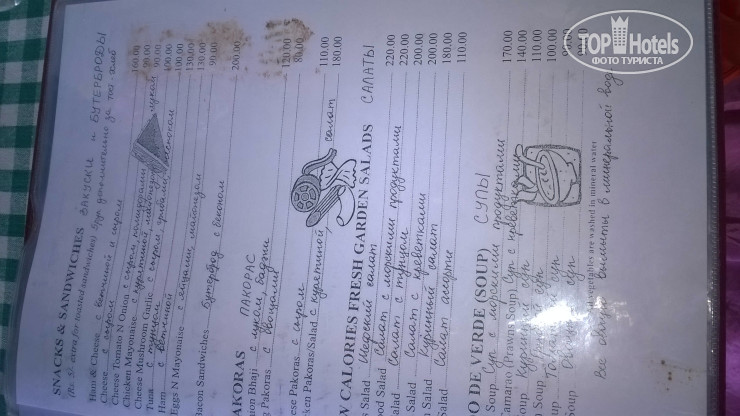 SNACKS & SANDWICHES ЗАКУСКИ и БУТЕРБРОДЫ
(Rs. 5/- extra for toasted sandwiches) 5руп дополнительно за тост хлеб
Ham & Cheese с ветчиной и сыром 160.00
Cheese с сыром 90.00
Cheese Tomato N Onion с сыром, помидорами, луком 90.00
Chicken Mayonnaise с курятиной, майонезом 100.00
Cheese Mushroom Garlic с сыром, грибами, чесноком 100.00
Tuna с тунцом 130.00
Ham с ветчиной
Eggs N Mayonnaise с яйцами, майонезом 130.00
Bacon Sandwiches бутерброд с беконом 90.00
PAKORAS ПАКОРАС 200.00
Onion Bhaji с луком, баджи
Pakoras с овощами
Cheese Pakoras с сыром 120.00
Chicken Pakoras/Salad с курятиной, салат 80.00
LOW CALORIES FRESH GARDEN SALADS САЛАТЫ
110.00
180.00
Salad Шефский салат 220.00
Seafood Salad Салат с морскими продуктами 220.00
Salad Салат с тунцом 200.00
Salad Салат с креветками 200.00
Salad Куринный салат 180.00
Salad Салат ассорте 110.00
CALDO DE VERDE (SOUP) СУПЫ
Soup Суп с морскими продуктами 170.00
Camaroo (Prawn Soup) Суп с креветками 140.00
Soup Куринный суп 110.00
Soup суп 100.00
Soup суп 90.00
Soup суп
vegetables are washed in mineral water
Все овощи вымыты в минеральной воде
TOP Hotels
ФОТО ТУРИСТА